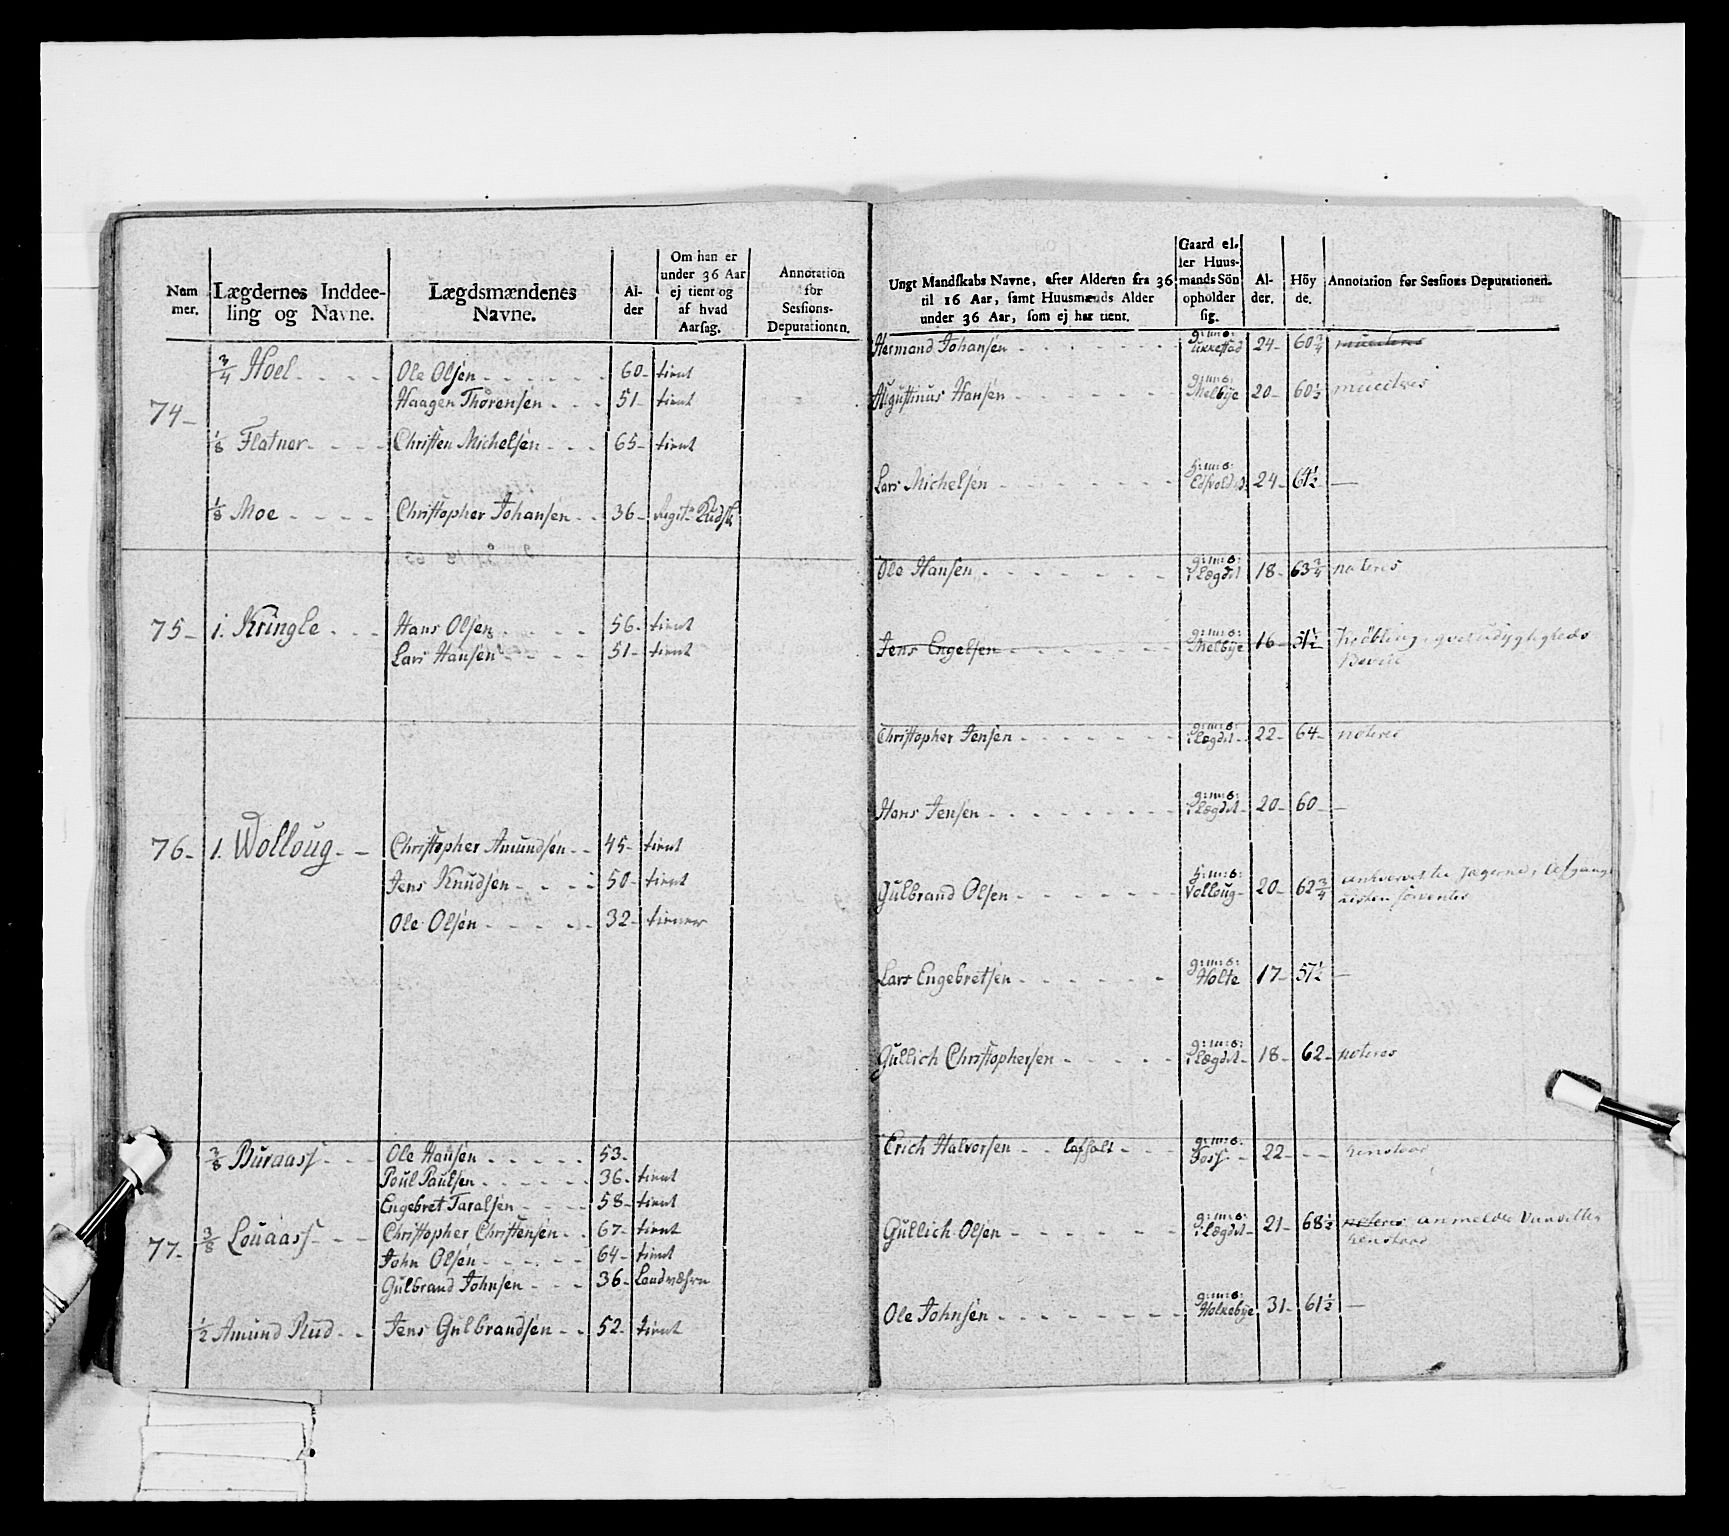 Num
mer.
Lægdernes Inddee-
ling og Navne.
Lægdsmændenes
Navne.
Al-
der
Om han er
under 36 Aar
ej tient og
af hvad
Aarsag.
Annotation
for
Sessions-
Deputationen.
74-
3/4 Hoel
Ole Olsen 60- tient
Haagen Thorensen 51- tient
1/8 Flatner Christen Michelsen 65- tient
1/8 Moe Christopher Johansen 36-
75- 1. Kringle
Hans Olsen 56- tient
Lars Hansen 51- tient
76- 1. Wolloug Christopher Amundsen 45- tient
Jens Knudsen 50- tient
Ole Olsen 32- tiener
77-
3/8 Buraass Ole Hansen 53-
Poul Paulsen 36- tient
Engebret Taralsen 58- tient
3/8 Louaass Christopher Christensen 67- tient
John Olsen 64- tient
Gulbrand Johnsen 36- Landværn
1/2 Amund Rud Jens Gulbrandsen 52- tient
Ungt Mandskabs Navne, efter Alderen fra 36
til 16 Aar, samt Huusmænds Alder
under 36 Aar, som ej har tient.
Gaard el-
ler Huus-
mands Sön
opholder
sig.
Al-
der.
Höy
de.
Annotation for Sessions Deputationen.
Hermand Johansen g:m:s: 24- 60 3/4
Augustinus Hansen g:m:s: Melbye 20- 60 1/2
Lars Michelsen h:m:s: 24- 61 1/2 —
Ole Hansen g:m:s: i Lægdet 18- 63 3/4 noteres
Jens Engelsen g:m:s: Melbye 16- 51 1/2
Christopher Jensen g:m:s: i Lægdet 22- 64- noteres
Hans Jensen g:m:s: i Lægdet 20- 60- —
Gulbrand Olsen h:m:s: Volloug 20- 62 3/4
Lars Engebretsen g:m:s: Holte 17- 57 1/2 —
Gullich Christophersen g:m:s: i Lægdet 18- 62- noteres
Erich Halvorsen g:m:s: Foss 22-
Gullich Olsen g:m:s: i Lægdet 21- 68 1/2 noteres
Ole Johnsen g:m:s: Holkebye 31- 61 1/2 —